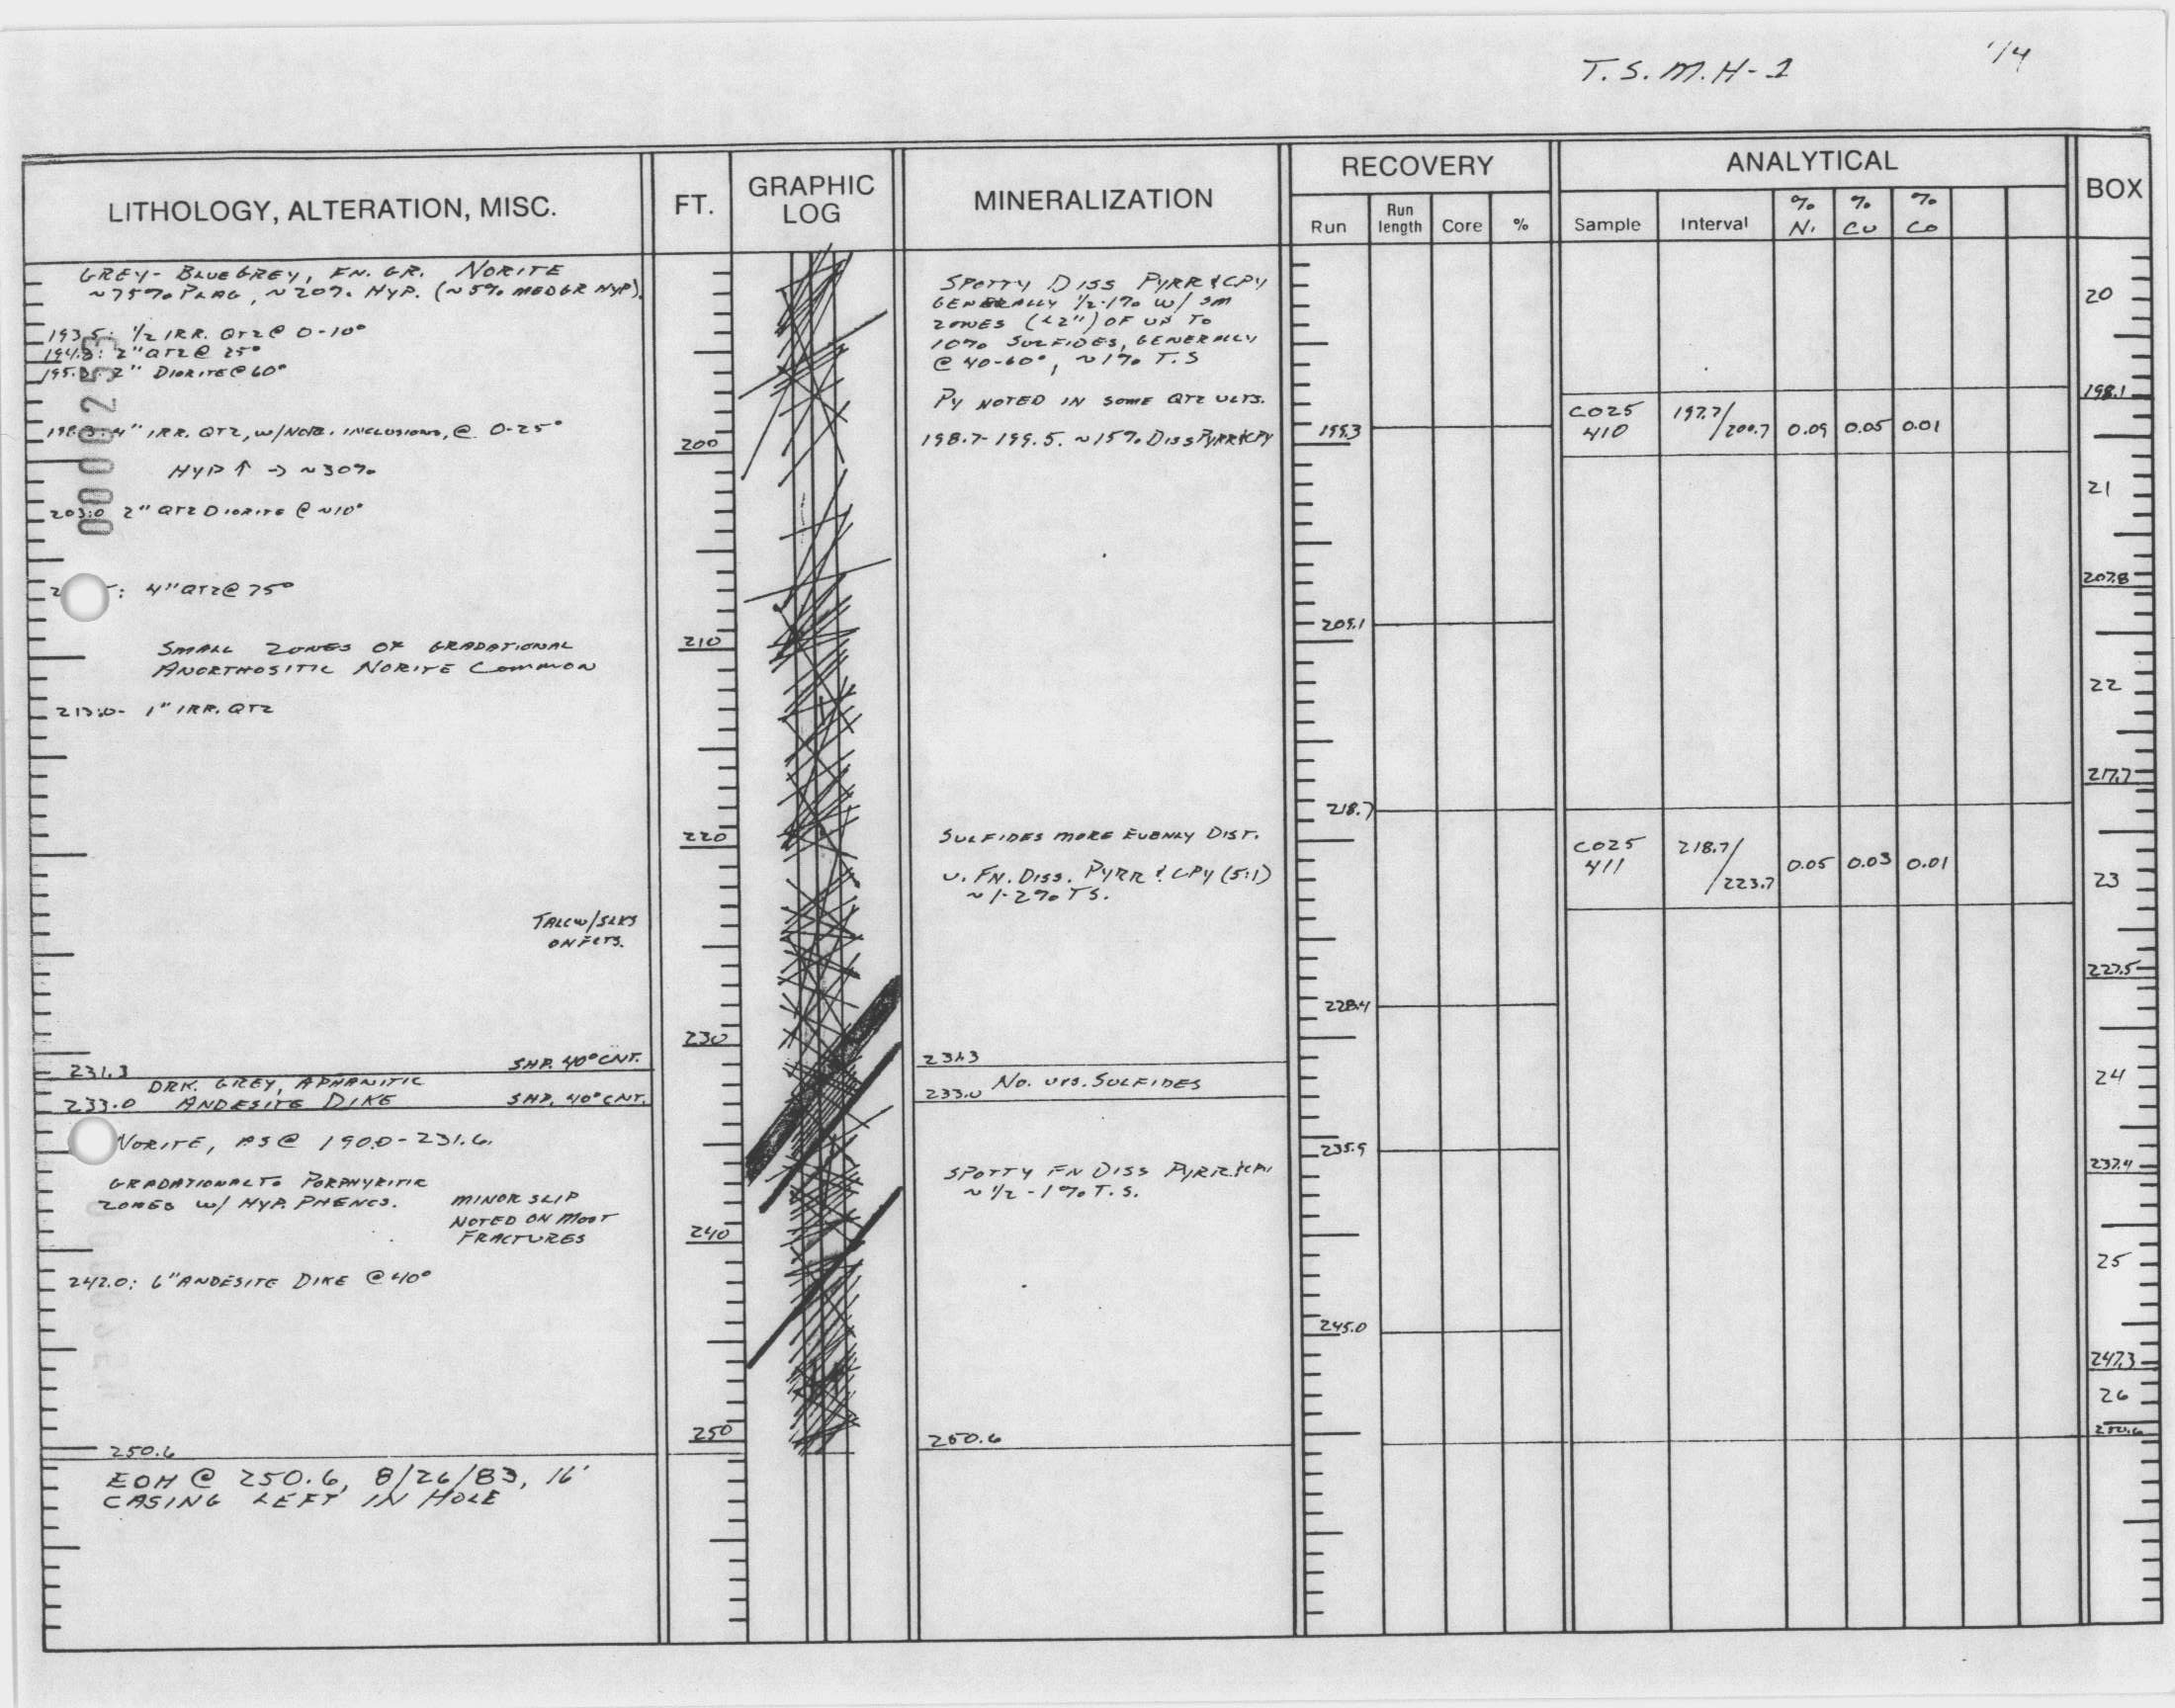 T.S.M.H-1
1/4
LITHOLOGY, ALTERATION, MISC.
FT.
GRAPHIC
LOG
MINERALIZATION
RECOVERY
Run
Run
length
Core
%
ANALYTICAL
Sample
Interval
% Ni
% Cu
% Co
BOX
GREY-BLUEGREY, FN. GR. NORITE
~75% PLAG, ~20% HYP. (~5% MEDGR HYP).
193.5: 1/2 IRR. QTZ @ 0-10°
194.8: 2" QTZ @ 25°
2" DIORITE @ 60°
4" IRR. QTZ, W/NOR. INCLUSIONS, @ 0-25°
HYP ↑ → ~30%
203.0 2" QTZ DIORITE @ ~10°
0000255
: 4" QTZ @ 75°
SMALL ZONES OF GRADATIONAL
ANORTHOSITIC NORITE COMMON
213.0- 1" IRR. QTZ
TALC W/SLKS
ON FCTS.
231.3 SHP. 40° CNT.
DRK. GREY, APHANITIC
233.0 ANDESITE DIKE SHP. 40° CNT.
NORITE, AS @ 190.0-231.6.
GRADATIONAL TO PORPHYRITIC
ZONES W/ HYP. PHENCS.
MINOR SLIP
NOTED ON MOST
FRACTURES
242.0: 6" ANDESITE DIKE @ 40°
250.6
EOH @ 250.6, 8/26/83, 16'
CASING LEFT IN HOLE
200
210
220
230
240
250
SPOTTY DISS PYRR & CPY
GENERALLY 1/2-1% W/ SM
ZONES (<2") OF UP TO
10% SULFIDES, GENERALLY
@ 40-60°, ~1% T.S
PY NOTED IN SOME QTZ VLTS.
198.7-199.5. ~15% DISS PYRR & CPY
SULFIDES MORE EVENLY DIST.
V. FN. DISS. PYRR & CPY (5:1)
~1-2% TS.
231.3
NO. VIS. SULFIDES
233.0
SPOTTY FN DISS PYRR & CPY
~1/2-1% T.S.
250.6
199.3
209.1
218.7
228.4
235.9
245.0
C025
410
197.7/
200.7
0.09
0.05
0.01
C025
411
218.7/
223.7
0.05
0.03
0.01
20
198.1
21
207.8
22
217.7
23
227.5
24
237.4
25
247.3
26
250.6